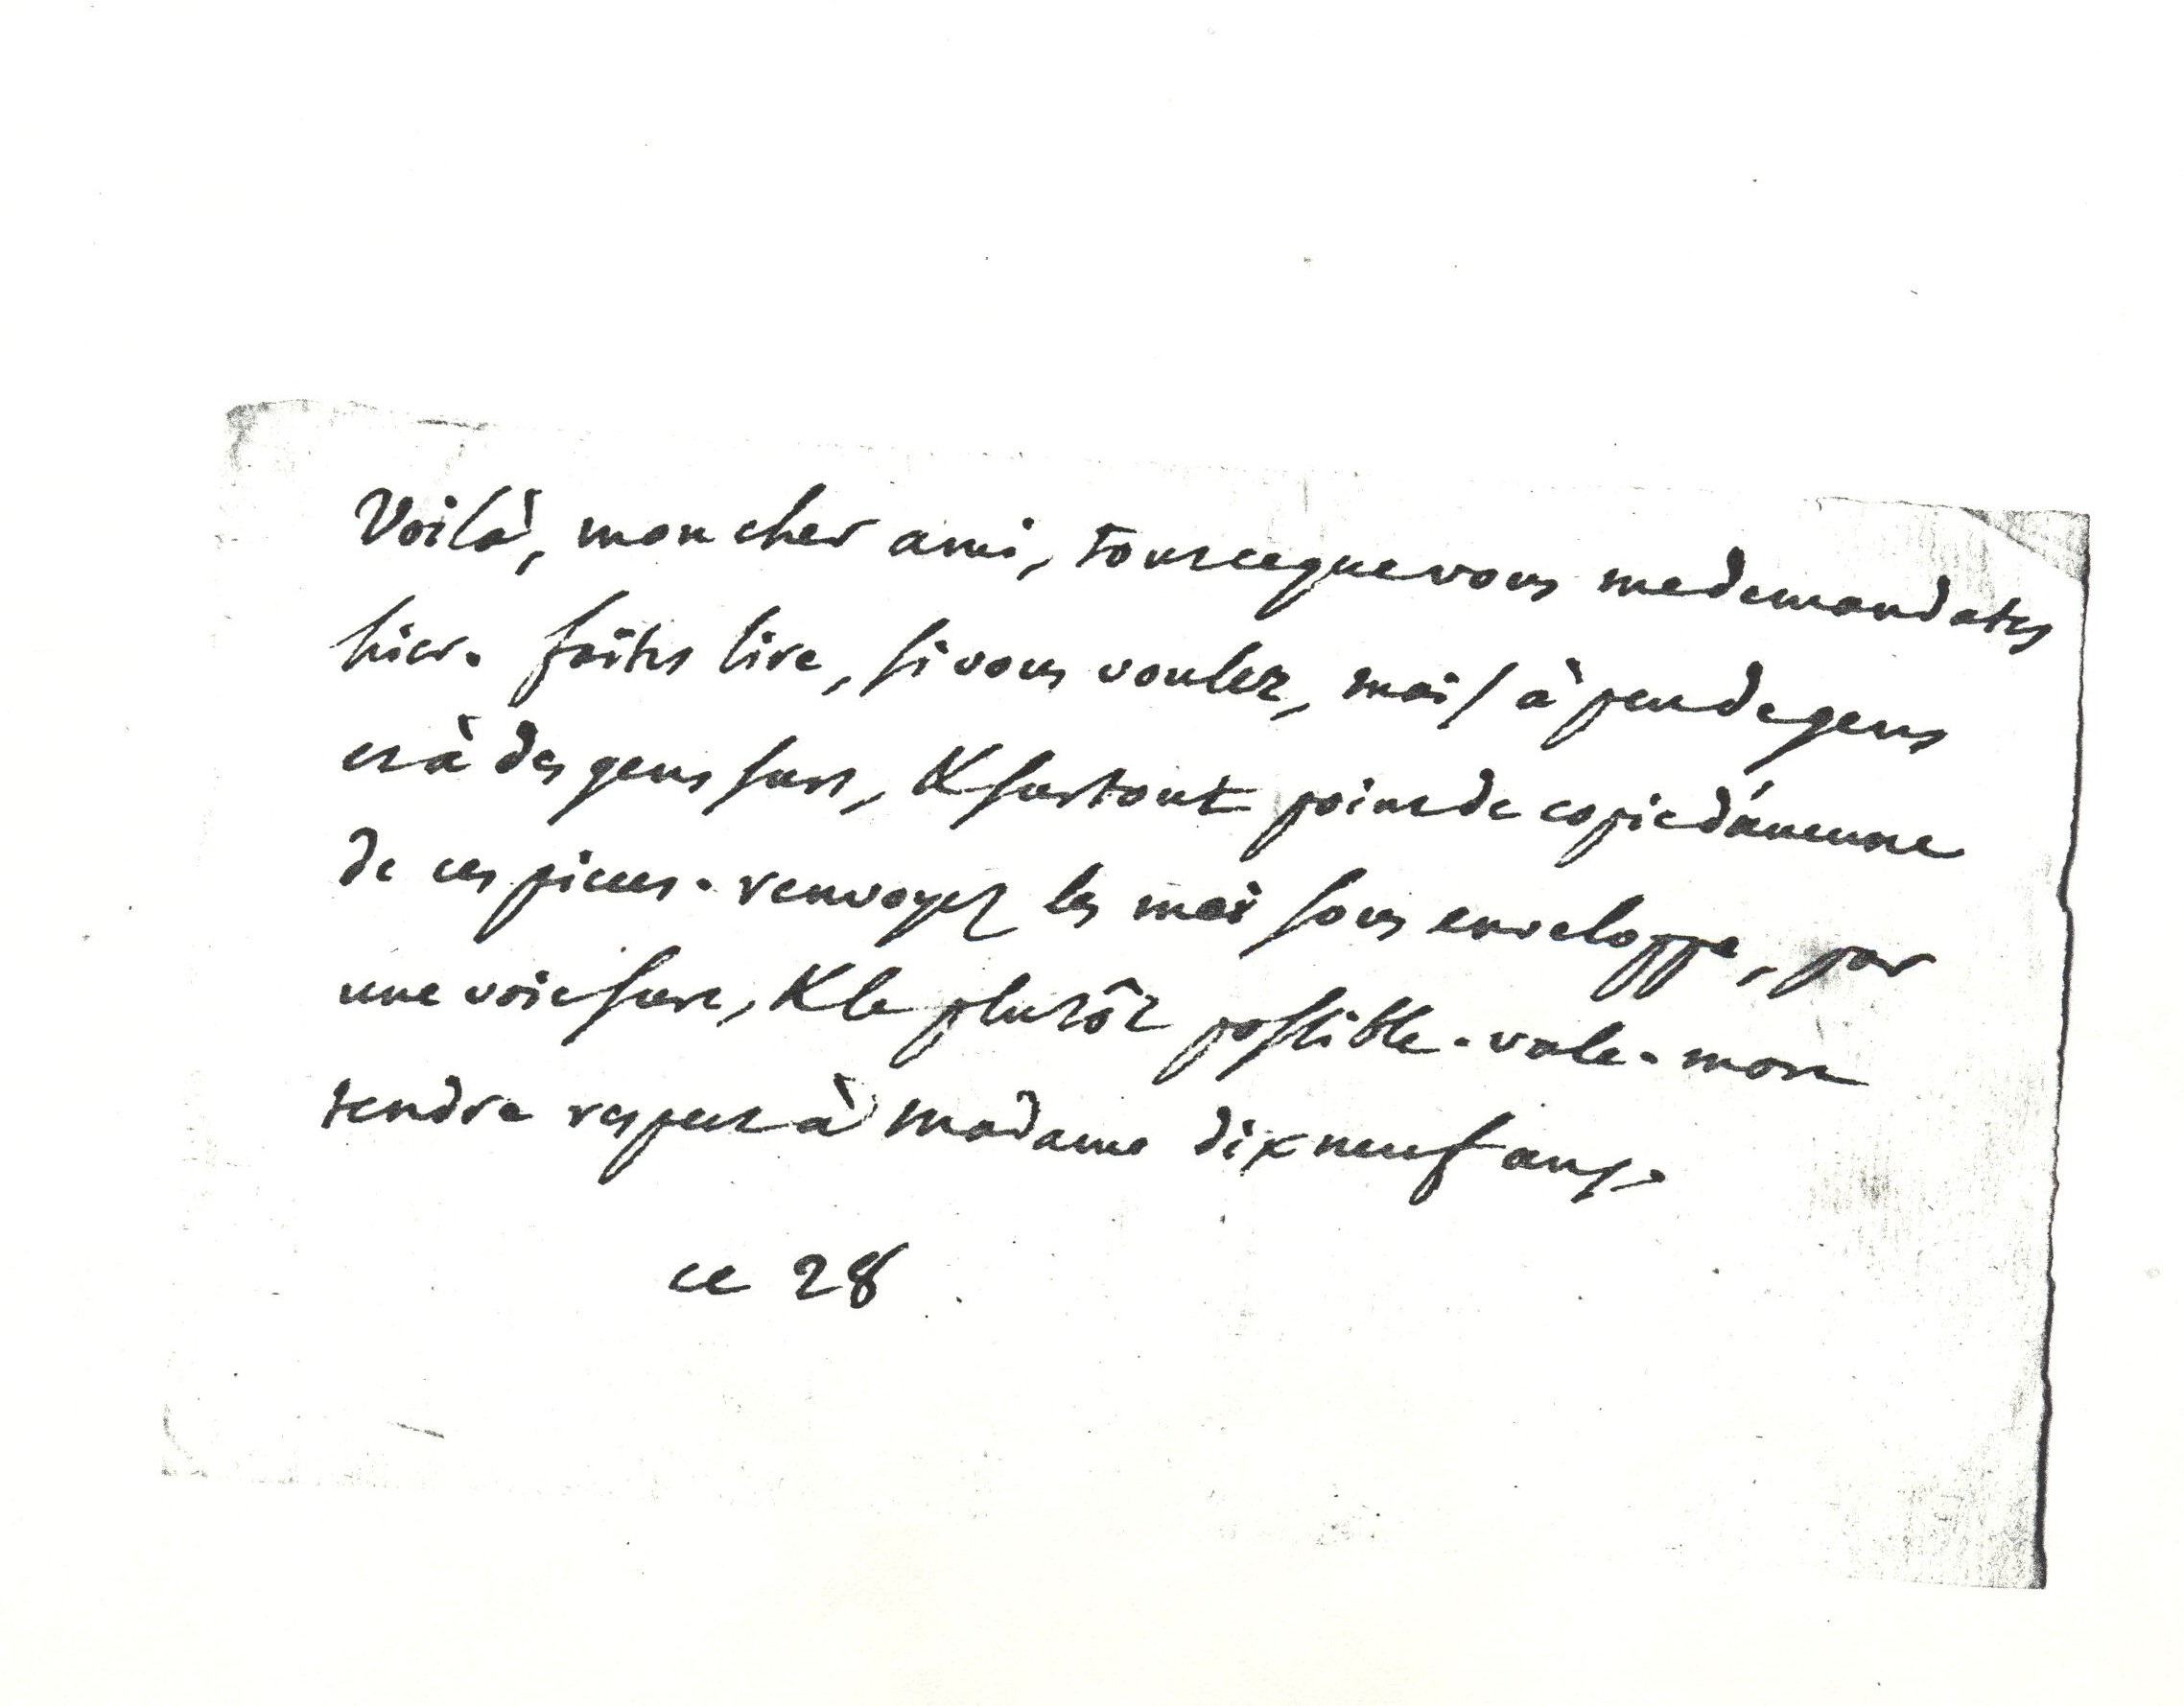 Voilà, mon cher ami, tout ce que vous me demandates
hier. faites lire, si vous voulez, mais à peu de gens
et à des gens surs, & surtout point de copie d'aucune
de ces pieces. renvoyez les moi sous enveloppe, par
une voie sure, & le plutôt possible. vale. mon
tendre respect à Madame dixneuf ans.
ce 28